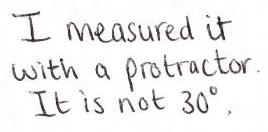 I measured it
with a protractor.
It is not 30°.